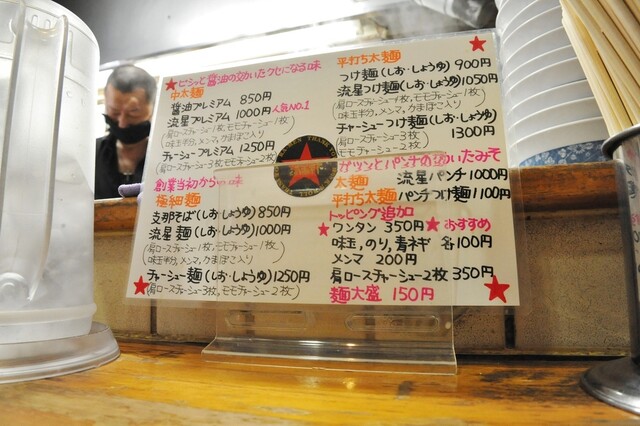 ピシッと醤油の効いたクセになる味
中太麺
醤油プレミアム 850円
流星プレミアム 1000円 人気NO.1
(肩ロースチャーシュー1枚、モモチャーシュー1枚
味玉半分、メンマ、かまぼこ入り)
チャーシュープレミアム 1250円
(肩ロースチャーシュー3枚、モモチャーシュー2枚)
創業当初からの味
極細麺
支那そば(しお・しょうゆ)850円
流星麺(しお・しょうゆ)1000円
(肩ロースチャーシュー1枚、モモチャーシュー1枚
味玉半分、メンマ、かまぼこ入り)
チャーシュー麺(しお・しょうゆ)1250円
(肩ロースチャーシュー3枚、モモチャーシュー2枚)
平打ち太麺
つけ麺(しお・しょうゆ)900円
流星つけ麺(しお・しょうゆ)1050円
(肩ロースチャーシュー1枚、モモチャーシュー1枚
味玉半分、メンマ、かまぼこ入り)
チャーシューつけ麺(しお・しょうゆ)
(肩ロースチャーシュー3枚
モモチャーシュー2枚) 1300円
ガツンとパンチの効いたみそ
太麺 流星パンチ 1000円
平打ち太麺 パンチつけ麺 1100円
トッピング追加
ワンタン 350円 おすすめ
味玉、のり、青ネギ 各100円
メンマ 200円
肩ロースチャーシュー2枚 350円
麺大盛 150円